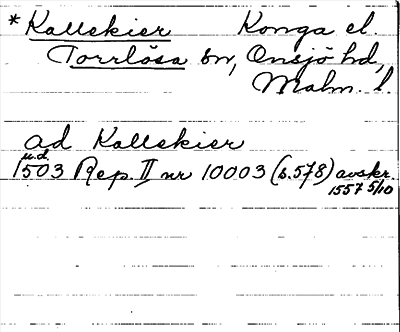 *Kallskier Konga el.
Torrlösa sn, Onsjö hd,
Malm. l.
ad Kallskier
u.d.
1503 Rep. II nr 10003 (s.578) avskr.
1557 5/10